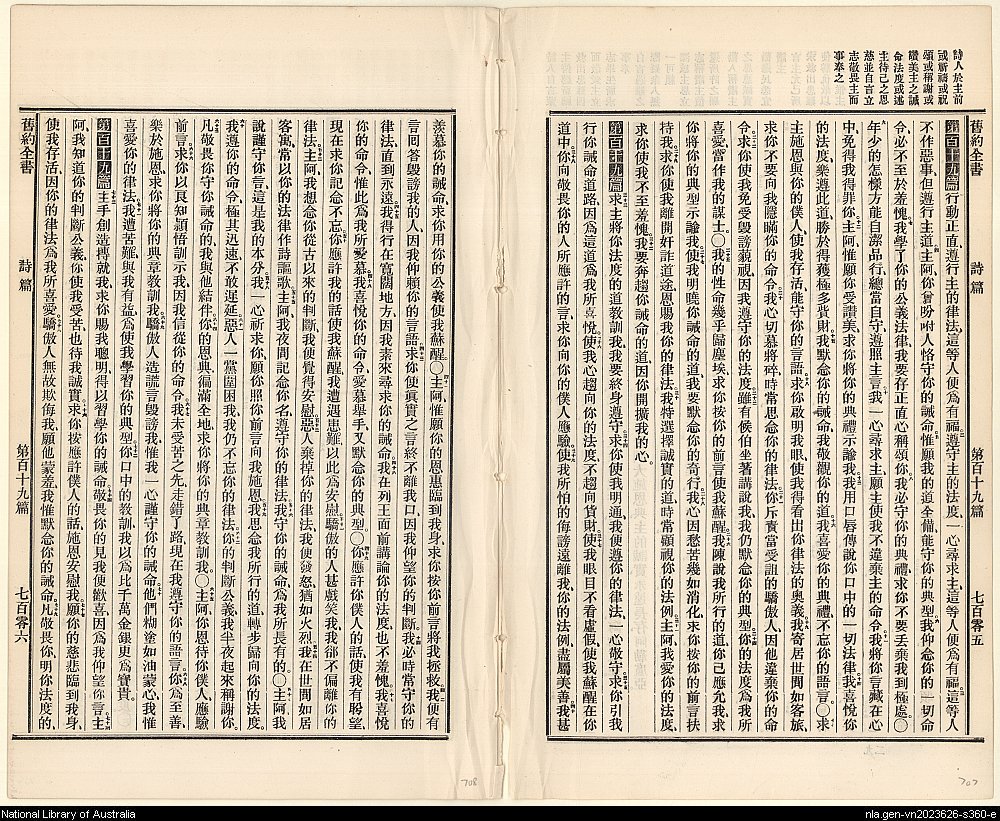 詩人於主前
或祈禱或祝
頌或稱謝或
讚美主之誡
命法度或述
主待己之恩
慈並自言立
志敬畏主而
事奉之
舊約全書 詩篇 第百十九篇 七百零五
第百十九篇 行動正直、遵行主的律法、這等人便爲有福、遵守主的法度、一心尋求主、這等人便爲有福、這等人
不作惡事、但遵行主道、主阿、你曾吩咐人恪守你的誡命、惟願我的道全備、能守你的典型、我仰念你的一切命
令、必不至於羞愧、我學了你的公義法律、我要存正直心稱頌你、我必守你的典禮、求你不要丟棄我到極處〇
年少的怎樣方能自潔品行、總當自守、遵照主言、我一心尋求主、願主使我不違棄主的命令、我將你言藏在心
中、免得我得罪你、主阿、惟願你受讚美、求你將你的典禮示諭我、我用口唇傳說你口中的一切法律、我喜悅你
的法度、樂遵此道、勝於得獲極多貨財、我默念你的誡命、我敬觀你的道、我喜愛你的典禮、不忘你的語言〇求
主施恩與你的僕人、使我存活、能守你的言語、求你啟明我眼、使我得看出你律法的奧義、我寄居世間如客旅、
求你不要向我隱瞞你的命令、我心切慕將碎、時常思念你的律法、你斥責當受詛的驕傲人、因他違棄你的命
令、求你使我免受毀謗藐視、因我遵守你的法度、雖有侯伯坐著講說我、我仍默念你的典型、你的法度爲我所
喜愛、當作我的謀士〇我的性命幾乎歸塵埃、求你按你的前言使我蘇醒、我陳說我所行的道、你已應允我、求
你將你的典型示諭我、使我明曉你誡命的道、我要默念你的奇行、我心因愁苦幾如消化、求你按你的前言扶
持我、求你使我離開奸詐道途、恩賜我你的律法、我特選擇誠實的道、時常顧視你的法例、主阿、我愛你的法度、
求你使我不至羞愧、我要奔趨你誡命的道、因你開擴我的心。
第百十九篇 求主將你法度的道教訓我、我要終身遵守、求你使我明通、我便遵你的律法、一心敬守、求你引我
行你誡命道路、因爲這道爲我所喜悅、使我心趨向你的法度、不趨向貨財、使我眼目不看虛假、使我蘇醒在你
道中、你向敬畏你的人所應許的言、求你向你的僕人應驗、使我所怕的侮謗遠離我、你的法例、盡屬美善、我甚
羨慕你的誡命、求你用你的公義使我蘇醒〇主阿、惟願你的恩惠臨到我身、求你按你前言將我拯救、我便有
言回答毀謗我的人、因我仰賴你的言語、求你使眞實之言終不離我口、因我仰望你的判斷、我必時常守你的
律法、直到永遠、我得行在寬闊地方、因我素來尋求你的誡命、我在列王面前講論你的法度、也不羞愧、我喜悅
你的命令、惟此爲我所愛慕、我喜悅你的命令、愛慕舉手、又默念你的典型〇你應許你僕人的話、使我有盼望、
現在求你記念不忘、你應許我的話使我蘇醒、我遭遇患難、以此爲安慰、驕傲的人甚戲笑我、我卻不偏離你的
律法、主阿、我想念你從古以來的判斷、我便覺得安慰、惡人棄掉你的律法、我便發怒猶如火烈、我在世間如居
客寓、常以你的法律作詩謳歌、主阿、我夜間記念你名、遵守你的律法、我守你的誡命、爲我所長有的〇主阿、我
說謹守你言、這是我的本分、我一心祈求你、願你照你前言向我施恩、我思念我所行的道、轉步歸向你的法度、
我遵你的命令、極其迅速、不敢遲延、惡人一黨圍困我、我仍不忘你的律法、你的判斷公義、我半夜起來稱謝你、
凡敬畏你守你誡命的、我與他結伴、你的恩典徧滿全地、求你將你的典章教訓我〇主阿、你恩待你僕人、應驗
前言、求你以良知穎悟訓示我、因我信從你的命令、我未受苦之先、走錯了路、現在我遵守你的語言、你爲至善、
樂於施恩、求你將你的典章教訓我、驕傲人造謊言毀謗我、惟我一心謹守你的誡命、他們糊塗如油蒙心、我惟
喜愛你的律法、我遭苦難、與我有益、爲使我學習你的典型、你口中的教訓、我以爲比千萬金銀更爲寶貴。
第百十九篇 主手創造摶就我、求你賜我聰明、得以習學你的誡命、敬畏你的見我便歡喜、因爲我仰望你言、主
阿、我知道你的判斷公義、你使我受苦也待我誠實、求你按應許僕人的話、施恩安慰我、願你的慈悲臨到我身、
使我存活、因你的律法爲我所喜愛、驕傲人無故欺侮我、願他蒙羞、我惟默念你的誡命、凡敬畏你、明你法度的、
舊約全書 詩篇 第百十九篇 七百零六
708
707
National Library of Australia
nla.gen-vn2023626-s360-e